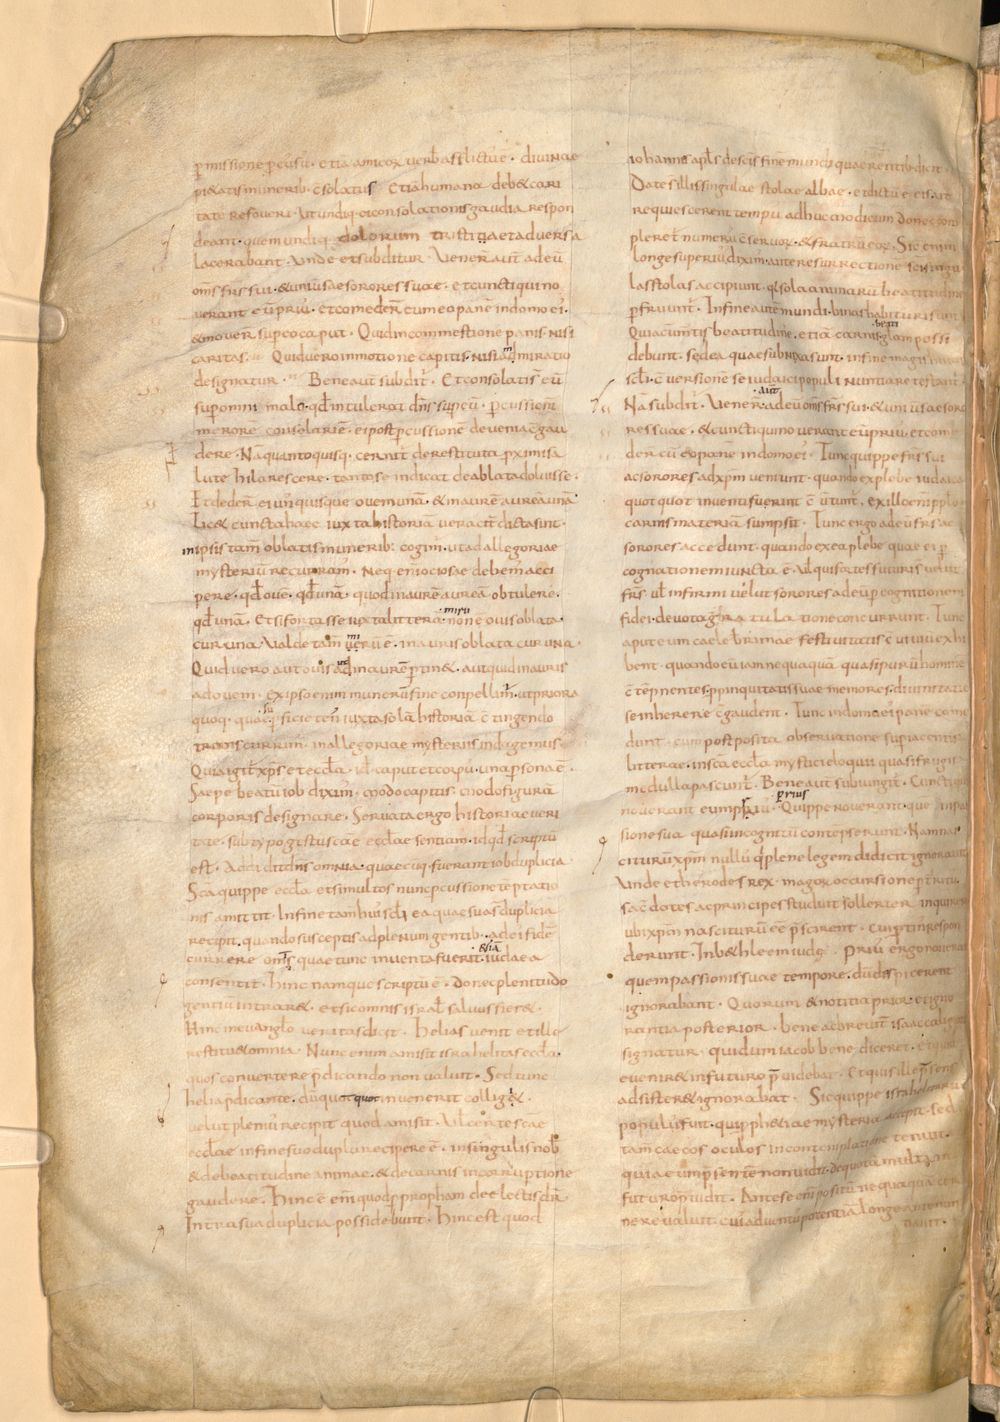 p̄missione p̄cusū · etiā amicoꝝ verbis afflictū ē · divinae
pietatis munerib· c̄solatus Etiā humana debet cari
tate refoveri · Ut undiq· ei consolationis gaudia respon
deant · quem undiq· dolorum tristitia et adversa
lacerabant · Unde et subditur · Vener̄ aūt ad eū
om̄s frs sui · & universae sorores suae · et cuncti qui no
verant eū priꝰ · et comeder̄ cum eo panē in domo eiꝰ·
& mover̄ sup eo caput · Quid in commestione panis · nisi
caritas · Quid vero in motione capitis · nisi admiratio
designatur · Bene aūt subditr̄ · Et consolati s̄ eū
sup omni malo · qđ intulerat dn̄s sup eū · p̄cussiōnis
merorē consolari ē · ei post p̄cussionē de venia c̄gau
dere · Nā quanto quisq· cernit de restituta p̄xim̄ sa
lute hilarescere · tanto se indicat de ablata doluisse ·
Et deder̄ ei unꝰquisque ovem unā · & inaurē aureā unā ·
Licet cuncta haec iuxta historiā veracit̄ dicta sint ·
in ipsis tam̄ oblatis munerib; cogimr̄ · ut ad allegoriae
mysteriū recurram̄ · Neq· em̄ ociosae debem̄ acci
pere · qđ ovē · qđ unā · quod inaurē aureā obtulere ·
qđ unā · Et si fortasse iuxta litterā · mirū non ē ovis oblata ·
cur una · valde tam̄ mirū ē · inauris oblata cur una ·
Quid vero aut ovis ad inaurē p̄tinet · aut quid inauris
ad ovem · Ex ipso enim munerū fine conpellimr̄ · ut priora
quoq· quae sup̄ficie ten̄ iuxta solā historiā c̄tingendo
transcurrim̄ · in allegoriae mysteriis indagemus
Quia igit̄ xp̄s et eccła · id· caput et corpꝰ · una p̄sona ē ·
Saepe beatū iob diximꝰ · modo capitis · modo figurā
corporis designare · Servata ergo historiae veri
tate · sub typo gestū scae eccłae sentiam̄ · id qđ scriptū
est · Addidit dn̄s omnia · quaecūq· fuerant iob duplicia
Sca quippe eccła etsi multos nunc p̄cussione tēptatio
nis amittit · In fine tam̄ huiꝰ scłi ea quae sua s̄ duplicia
recipit · quando susceptis ad plenum gentib· · ad ei fidē
currere om̄is quae tunc inventa fuerit · iudaea
consentit · hinc namque scriptū ē · Donec plenitudo
gentiū intraret · et sic omnis israł salvus fieret ·
Hinc in evangło veritas dicit · Helias venit et ille
restituet omnia · Nunc enim amisit israhelitas eccła ·
quos convertere p̄dicando non valuit · Sed tunc
helia p̄dicante · dū quotquot invenerit colligit ·
velut pleniꝰ recipit quod amisit · Vel certe scae
eccłae in fine suo duplū recipere ē · in singulis nob·
& de beatitudine animae · & de carnis incorruptione
gaudere · Hinc ē em̄ quod p̄ propħam de electis dr̄
In terra sua duplicia possidebunt · Hinc est quod
iohannes apl̄s de sc̄is finē mundi quaerentib· dicit ·
Datae s̄ illis singulae stolae albae · et dictū ē eis · ut
requiescerent tempꝰ adhuc modicum donec com
pleret̄ numerꝰ c̄servoꝝ · & fratrū eoꝝ · Sic enim
longe superiꝰ diximꝰ · ante resurrectionē sci singu
las stolas accipiunt · q sola animarū beatitudine
p̄fruunt̄ · In fine autē mundi · binas habituri sunt
Quia cū mentis beatitudine · etiā carnis · glam possi
debunt · sed ea quae subnixa sunt · in fine magis
scłi · c̄versionē se iudaici populi nuntiare testant̄
Nā subditr̄ · Vener̄ · aūt · ad eū om̄s frs sui · & universae soro
res suae · & cuncti qui noverant eū priꝰ · et come
der̄ cū eo panē in domo eiꝰ · Tunc quippe frs sui
ac sorores ad xp̄m veniunt · quando ex plebe iudaica
quotquot inventi fuerint c̄vertunt̄ · ex illo em̄ pplo
carnis materiā sumpsit · Tunc ergo ad eū frs ac
sorores accedunt · quando ex ea plebe quae ei p̄
cognationem iuncta ē · Vel qui fortes futuri s̄ velut
frs · vł infirmi velut sorores ad eū p̄ cognitionem
fidei · devota gratulatione concurrunt · Tunc
aput eum caeleberrimae festivitatis c̄viviū exhi
bent · quando eū iam nequaquā quasi purū hominē
c̄tēpnentes · ppinquitatis suae memores · divinitati
se inherere c̄gaudent · Tunc in domo eiꝰ panē come
dunt · cum postposita observatione sup iacentis
litterae · in sca eccła mystici eloquii quasi frugis
medulla pascunt̄ · Bene aūt subiungit̄ · Cuncti qui
noverant eum priꝰ · prius · Quippe noverant · quē in pas
sione sua quasi incognitū contēpserunt · Nam nas
citurū xp̄m nullꝰ q plene legem didicit ignoravit
Unde et herodes rex · magoꝝ occursione p̄territꝰ
sacerdotes ac principes studuit sollerter inquirere
ubi xp̄m nasciturū eē p̄scirent · Cui p̄tin̄ respon
derunt · In bethleem iudę · Priꝰ ergo noverant
quem passionis suae tempore · dū dispicerent
ignorabant · Quorum & notitia prior · et igno
rantia posterior · bene ac breviť isaac caligante
signatur · qui dum iacob benediceret · et quid
eveniret in futuro p̄videbat · et quis illi p̄sens
adsisteret ignorabat · Sic quippe israhelitarū
populꝰ fuit · qui pphetiae mysteria accepit · sed
tam̄ caecos oculos in contemplatione tenuit ·
quia eum p̄sentem non vidit · de quo tā multa in
futuro p̄vidit · Ante se em̄ positū nequaquā cer
nere valuit · cuiꝰ adventꝰ potentiā longe ante nun
tiavit ·